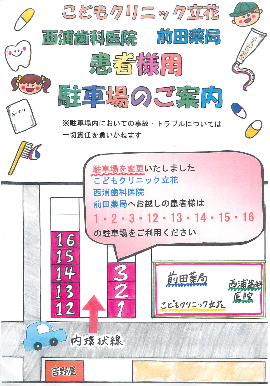 こどもクリニック立花
西浦歯科医院 前田薬局
患者様用
駐車場のご案内
※駐車場内においての事故・トラブルについては
一切責任を負いかねます
駐車場を変更いたしました
こどもクリニック立花
西浦歯科医院
前田薬局へお越しの患者様は
1・2・3・12・13・14・15・16
の駐車場をご利用ください
16
15
14
13
12
3
2
1
前田薬局
西浦歯科
医院
こどもクリニック立花
内環状線